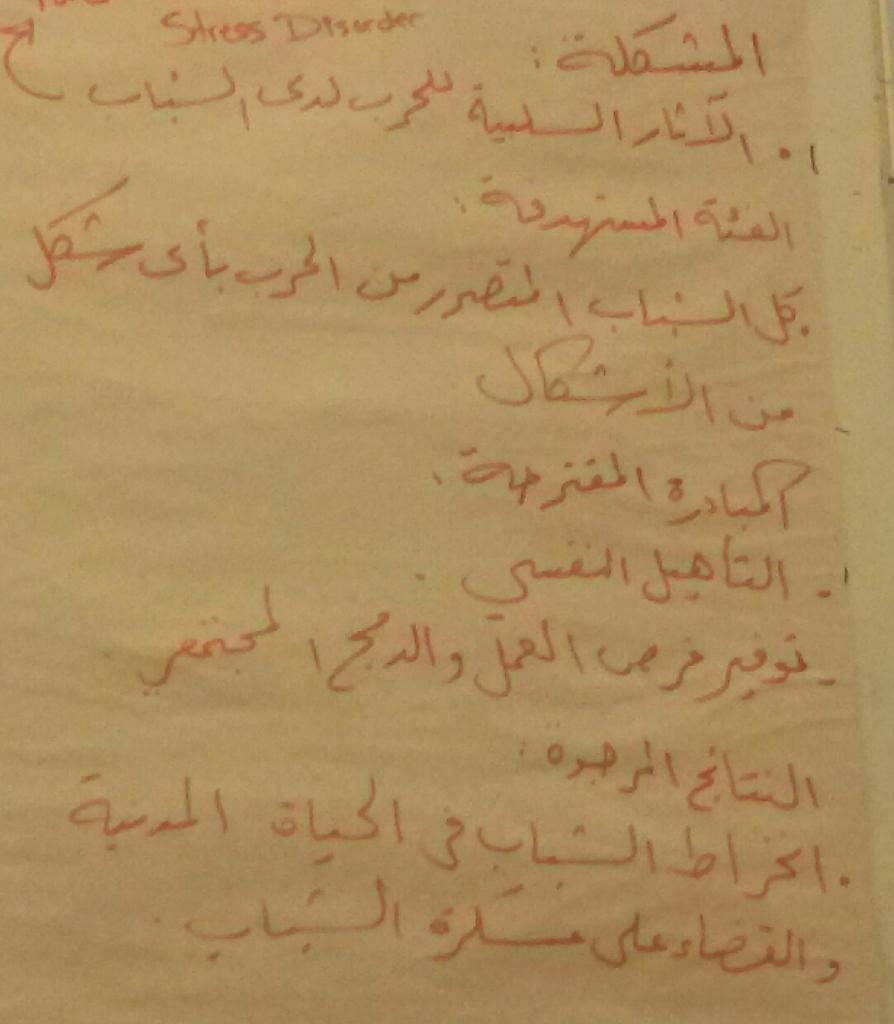 Stress Disorder
المشكلة :
١. الآثار السلبية للحرب لدى الشباب
الفئة المستهدفة :
. كل الشباب المتضرر من الحرب بأى شكل
من الأشكال
المبادرة المقترحة :
- التأهيل النفسي .
- توفير فرص العمل والدمج المجتمعى .
النتائج المرجوه :
. انخراط الشباب فى الحياة المدنية
والقضاء على عسكرة الشباب .